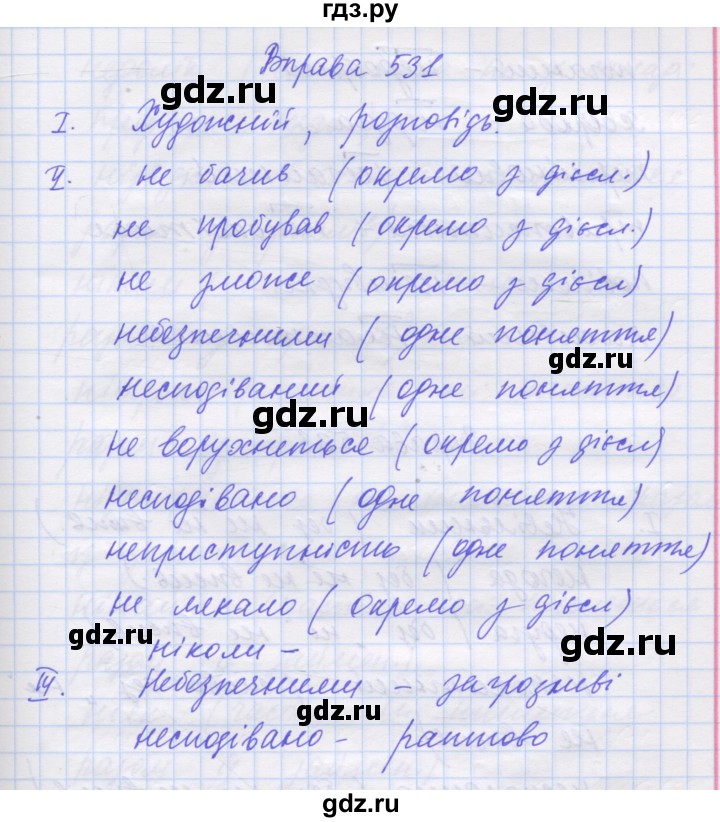 гдз.ру
Вправа 531
gdz.ru gdz.ru
I. Художній, розповідь.
II. не бачив (окремо з дієсл.)
не пробував (окремо з дієсл.)
gdz.ru
не зможе (окремо з дієсл)
небезпечними (одне поняття)
gdz.ru
несподіваний (одне поняття)
gdz.ru
не ворухнеться (окремо з дієсл)
несподівано (одне поняття)
неприступність (одне поняття)
gdz.ru
не лякало (окремо з дієсл)
gdz.ru
ніколи -
gdz.ru
IV. Небезпечними - загрозливі
gdz.ru
несподівано - раптово
gdz.ru